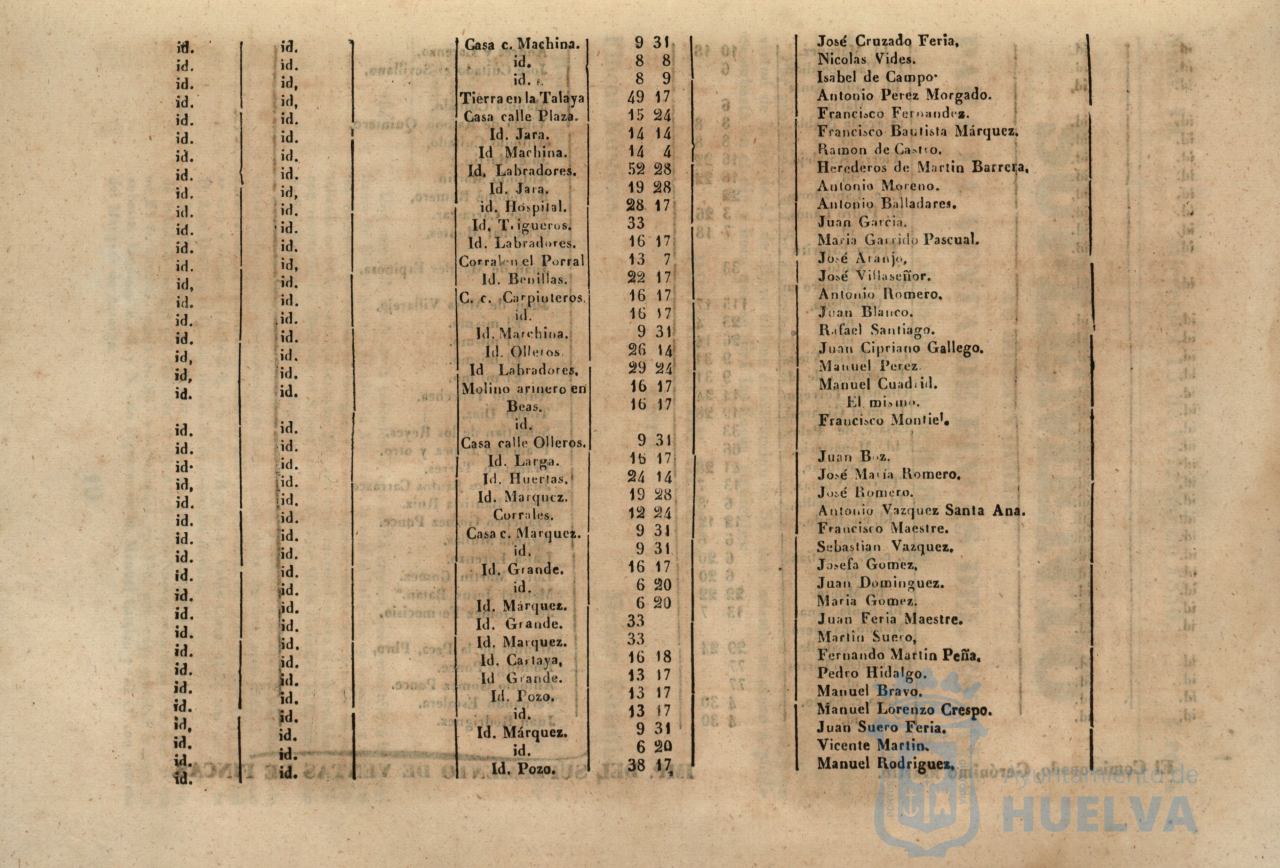 id. id. Casa c. Machina. 9 31 José Cruzado Feria,
id. id. id. 8 8 Nicolas Vides.
id. id, id. 8 9 Isabel de Campo·
id. id, Tierra en la Talaya 49 17 Antonio Perez Morgado.
id. id. Casa calle Plaza. 15 24 Francisco Fernandez.
id. id. Id. Jara. 14 14 Francisco Bautista Márquez.
id. id. Id Machina. 14 4 Ramon de Castro.
id. id. Id. Labradores. 52 28 Herederos de Martin Barrera,
id. id, Id. Jara. 19 28 Antonio Moreno.
id. id. id. Hospital. 28 17 Antonio Balladares.
id. id. Id. Trigueros. 33 Juan Garcia.
id. id. Id. Labradores. 16 17 Maria Garrido Pascual.
id. id, Corral en el Porral 13 7 José Aranjo,
id, id. Id. Benillas. 22 17 José Villaseñor.
id. id. C. c. Carpinteros. 16 17 Antonio Romero,
id. id. id. 16 17 Juan Blanco.
id. id. Id. Marchina. 9 31 Rafael Santiago.
id, id. Id. Olleros. 26 14 Juan Cipriano Gallego.
id, id. Id Labradores, 29 24 Manuel Perez.
id. id. Molino arinero en 16 17 Manuel Cuadrid.
Beas. 16 17 El mismo.
id. id. id. Francisco Montiel.
id. id. Casa calle Olleros. 9 31
id· id. Id. Larga. 16 17 Juan Boz.
id, id. Id. Huertas. 24 14 José María Romero,
id. id. Id. Marquez. 19 28 José Romero.
id. id. Corrales. 12 24 Antonio Vazquez Santa Ana.
id. id. Casa c. Marquez. 9 31 Francisco Maestre.
id. id. id. 9 31 Sebastian Vazquez,
id. id. Id. Grande. 16 17 Josefa Gomez,
id. id. id. 6 20 Juan Dominguez.
id. id. Id. Márquez. 6 20 Maria Gomez.
id. id. Id. Grande. 33 Juan Feria Maestre.
id. id. Id. Marquez. 33 Martin Suero,
id. id. Id. Cartaya, 16 18 Fernando Martin Peña.
id. id. Id Grande. 13 17 Pedro Hidalgo.
id. id. Id. Pozo. 13 17 Manuel Bravo.
id, id. id. 13 17 Manuel Lorenzo Crespo.
id. id. Id. Márquez. 9 31 Juan Suero Feria.
id. id. id. 6 20 Vicente Martin.
id. id. Id. Pozo. 38 17, Manuel Rodriguez,
Ayuntamiento de
HUELVA